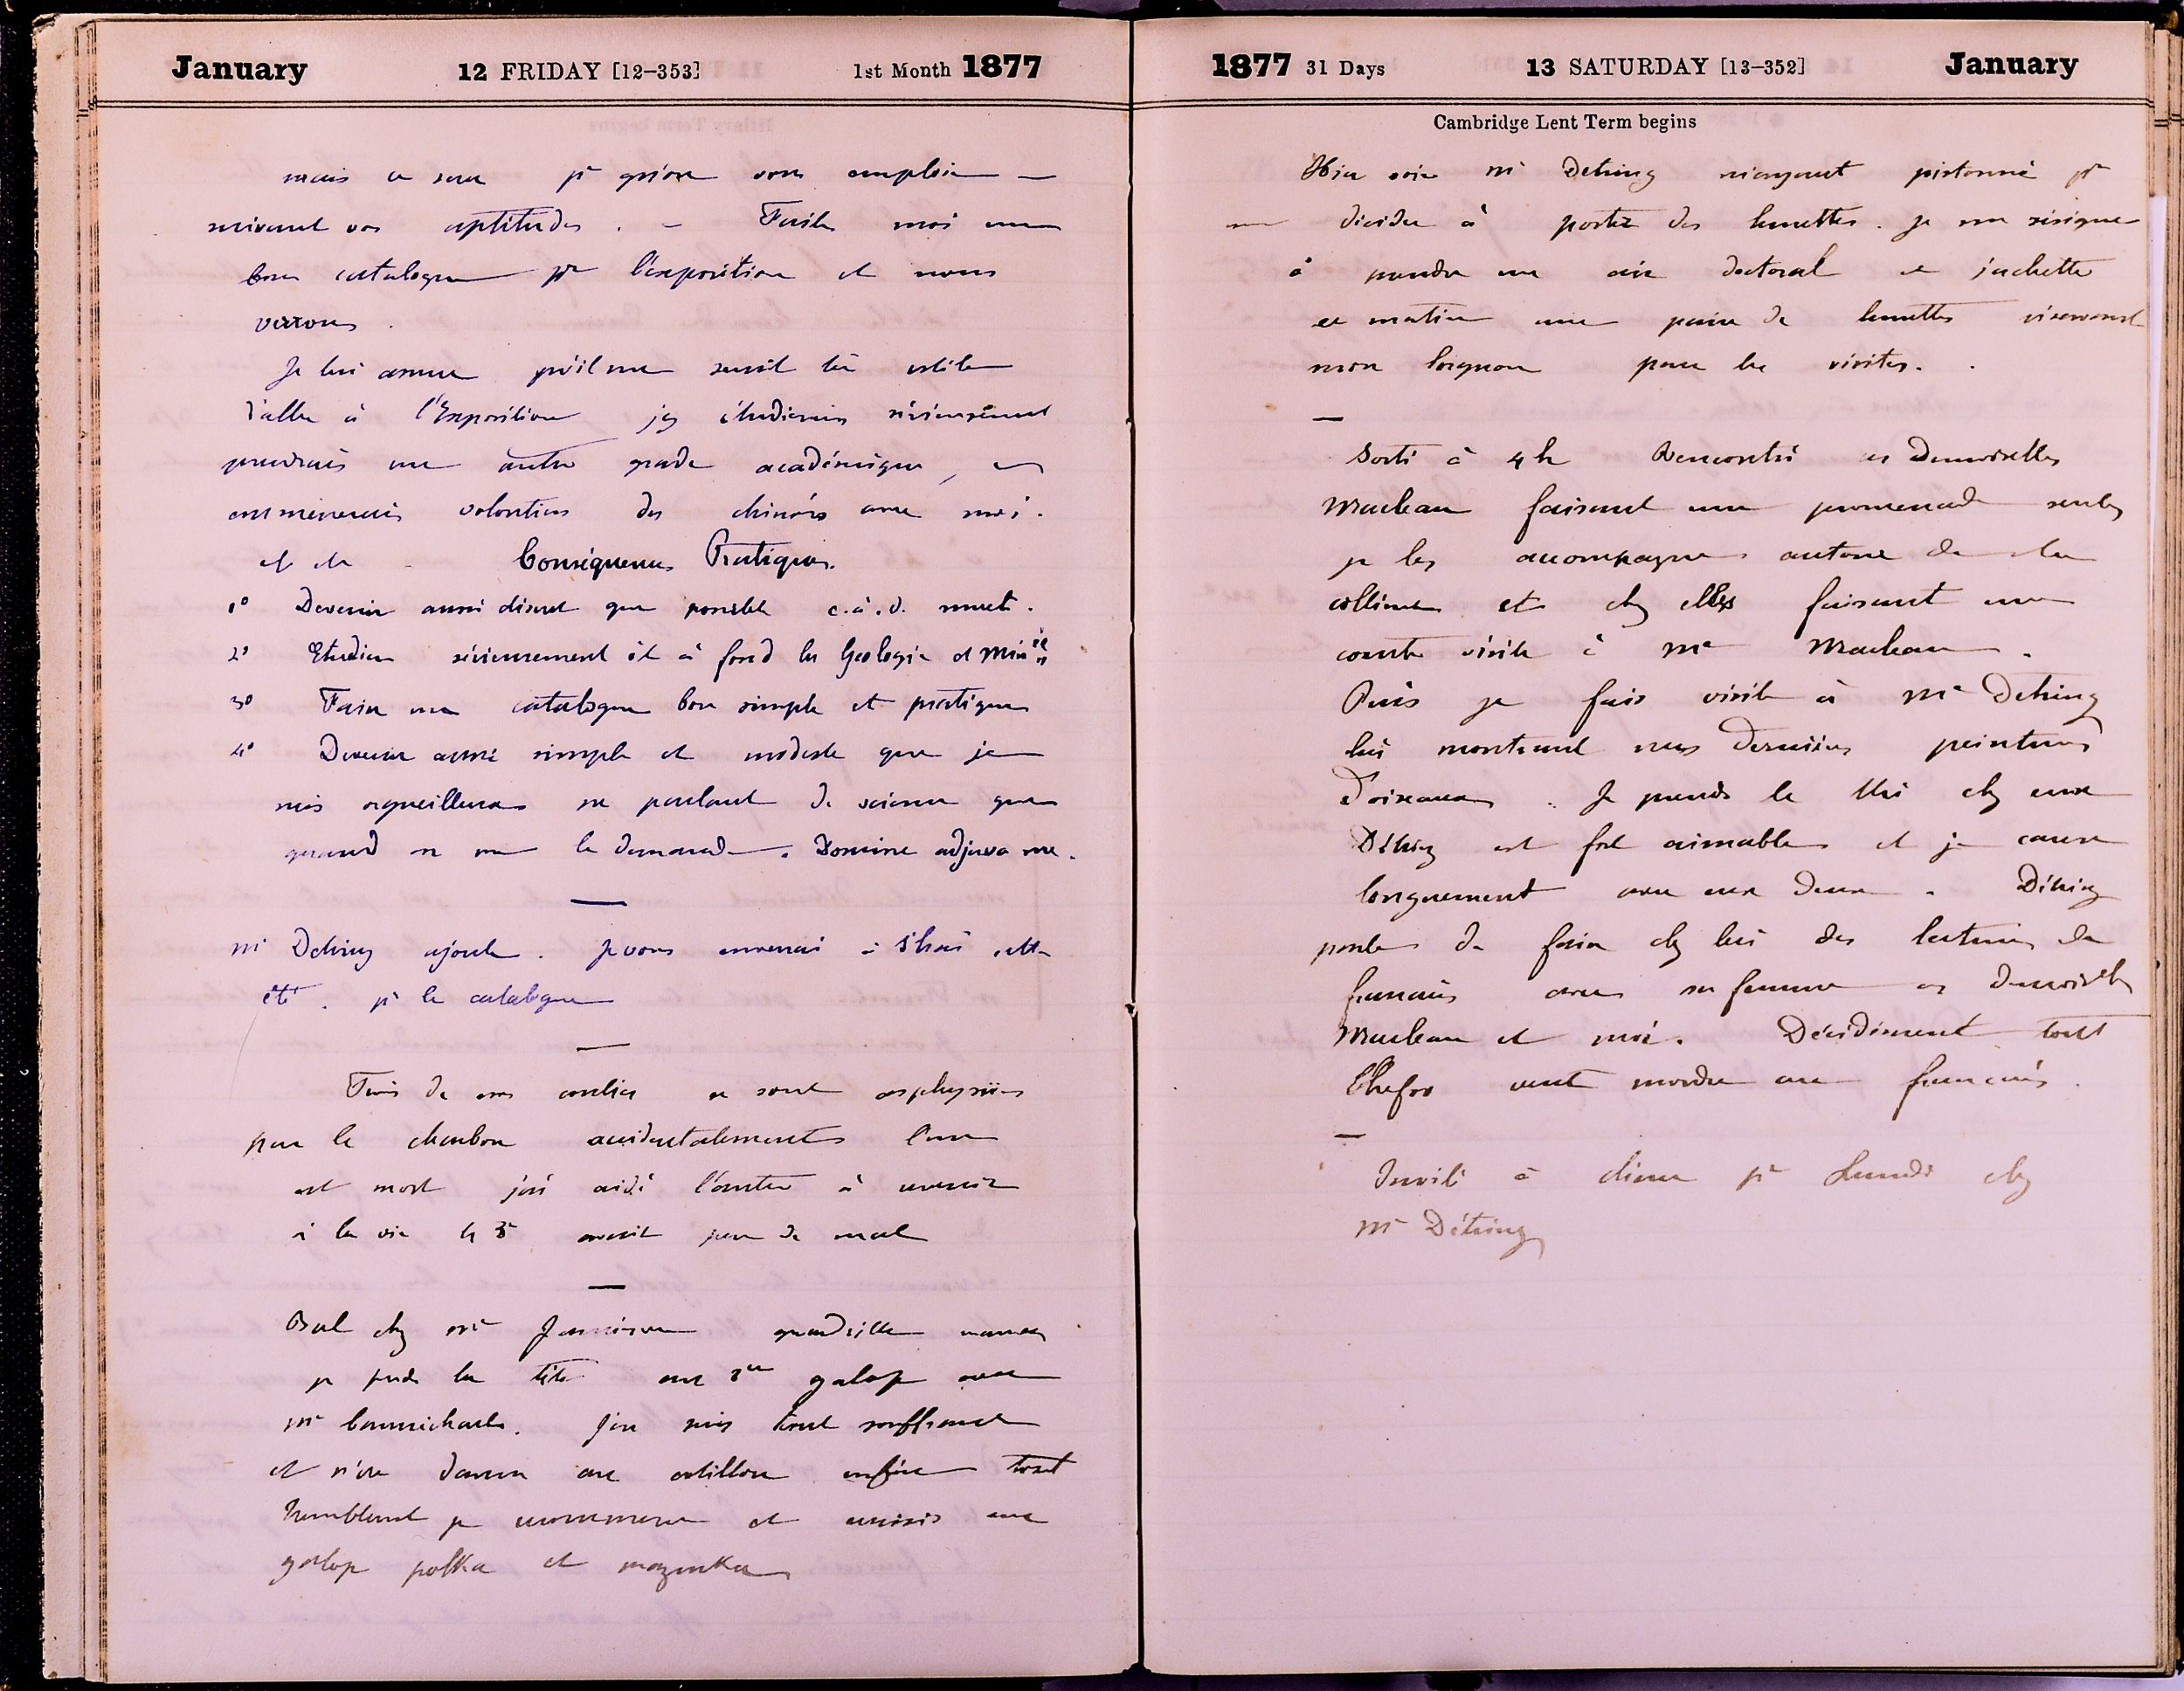 January 12 FRIDAY [12-353] 1st Month 1877
mais ce sera pr qu'on vous emploie —
suivant vos aptitudes . — Faites moi un
bon catalogue pr l'exposition et nous
verrons .
Je lui assure qu'il me serait très utile
d'aller à l'Exposition j'y étudierais sérieusement
prendrais un autre grade académique, et
emmènerais volontiers des chinois avec moi.
et etc - Conséquences Pratiques.
1° Devenir aussi discret que possible c.à.d. muet.
2° Etudier sérieusement et à fond la Géologie et Minie
3° Faire un catalogue bon simple et pratique
4° Devenir aussi simple et modeste que je
suis orgueilleux ne parlant de science que
quand on me le demande. Domine adjuva me.
—
Mr Detring ajoute . Je vous enverrai à Shai cette
été . pr le catalogue
—
Trois de nos coolies se sont asphyxiés
par le charbon accidentalement l'un
est mort j'ai aidé l'autre à revenir
à la vie le 3e avait peu de mal
—
Bal chez Mr Jamieson quadrille
je perds la tête au galop avec
Mr Carmichael. J'en suis tout souffrant
et n'en danse au cotillon enfin tout
tremblant je recommence et réussis au
galop polka et mazurka
1877 31 Days 13 SATURDAY [13-352] January
Cambridge Lent Term begins
Hier soir Mr Detring m'ayant pistonné pr
me décider à porter des lunettes. je me résigne
à prendre un air doctoral et j'achette
ce matin une paire de lunettes réservant
mon lorgnon pour les visites.
—
Sorti à 4h Rencontré les Demoiselles
Maclean faisant une promenade seules
je les accompagne autour de la
colline et chez elles faisant une
courte visite à Me Maclean .
Puis je fais visite à Me Detring
lui montrant mes dernières peintures
d'oiseaux . Je prends le thé chez eux
Détring est fort aimable et je cause
longuement avec eux deux . Détring
parle de faire chez lui des lectures de
français avec sa femme les Demoiselles
Maclean et moi. Décidément tout
Chefoo veut mordre au français.
—
Invité à diner pr Lundi chez
Mr Détring